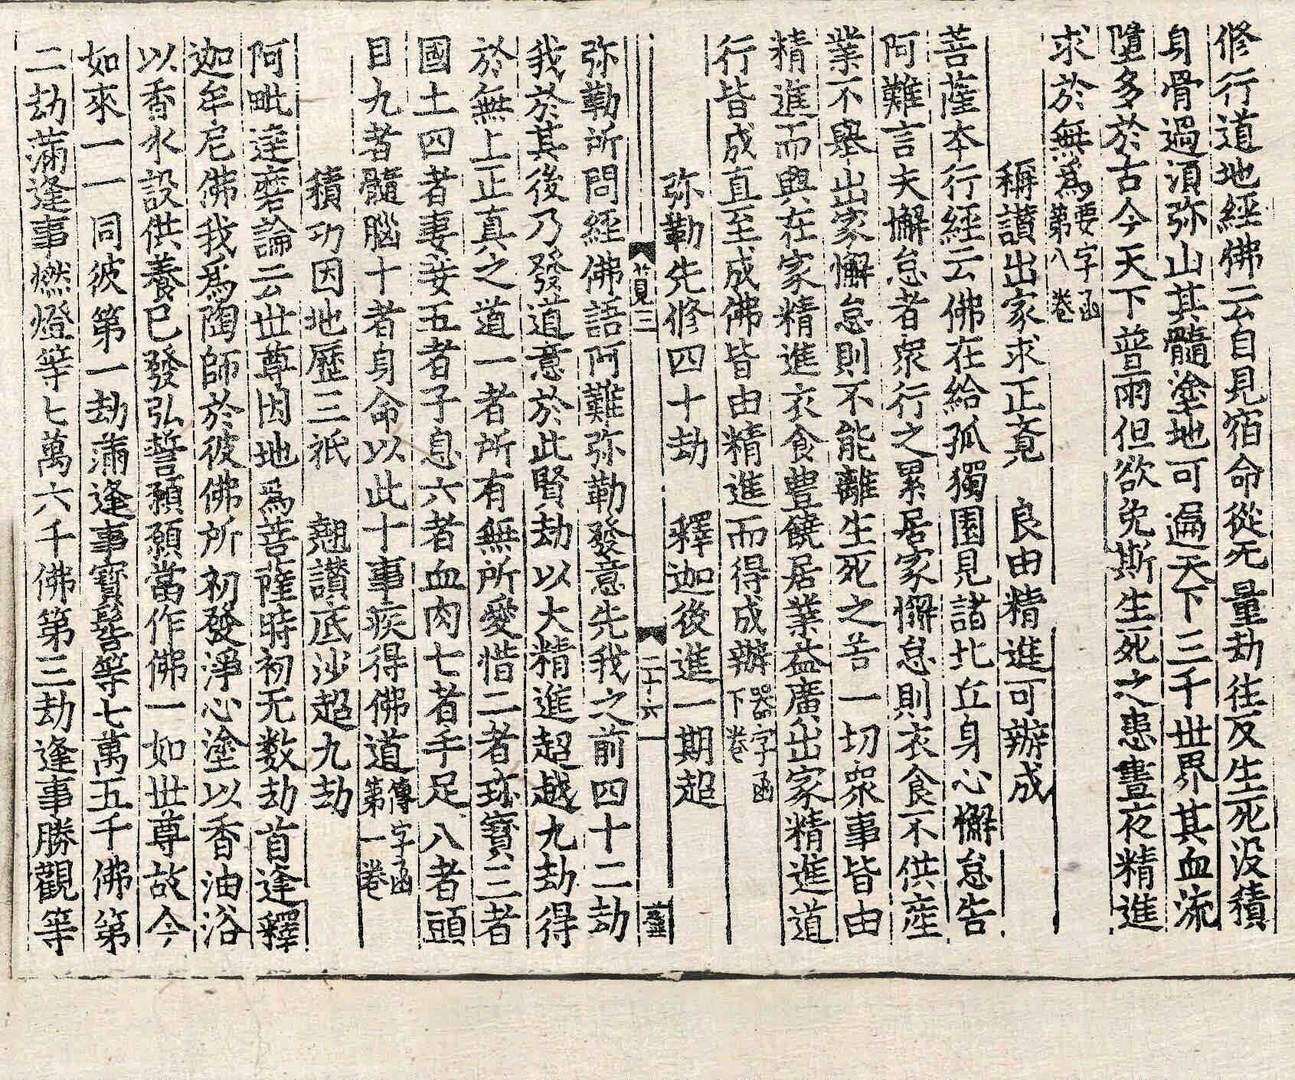 修行道地經佛云自見宿命從无量劫往反生死没積
身骨過湏弥山其髓塗地可遍天下三千世界其血流
墮多於古今天下普雨但欲免斯生死之患晝夜精進
求於無爲要字函第八卷
稱讃出家求正覔　良由精進可辦成
菩薩本行經云佛在給孤獨園見諸比丘身心懈怠告
阿難言夫懈怠者衆行之累居家懈怠則衣食不供産
業不舉出家懈怠則不能離生死之苦一切衆事皆由
精進而興在家精進衣食豊饒居業益廣出家精進道
行皆成直至成佛皆由精進而得成辦器字函下卷
弥勒先修四十劫　釋迦後進一期超
莧三　二十六
弥勒所問經佛語阿難弥勒發意先我之前四十二劫
我於其後乃發道意於此賢劫以大精進超越九劫得
於無上正真之道一者所有無所愛惜二者珎寶三者
國土四者妻妾五者子息六者血肉七者手足八者頭
目九者髓腦十者身命以此十事疾得佛道傳字函第一卷
積功因地歷三祇　翹讃底沙超九劫
阿毗達磨論云世尊因地爲菩薩時初无数劫首逢釋
迦牟尼佛我爲陶師於彼佛所初發淨心塗以香油浴
以香水設供養已發弘誓願願當作佛一如世尊故今
如來一一同彼第一劫滿逢事寶髻等七萬五千佛第
二劫滿逢事燃燈等七萬六千佛第三劫逢事勝觀等